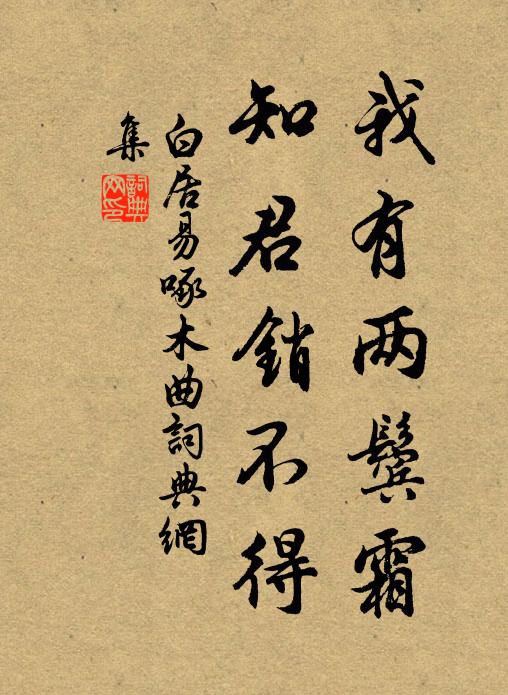 我有两鬓霜
知君銷不得
白居易啄木曲詞典網
集
詞典網印